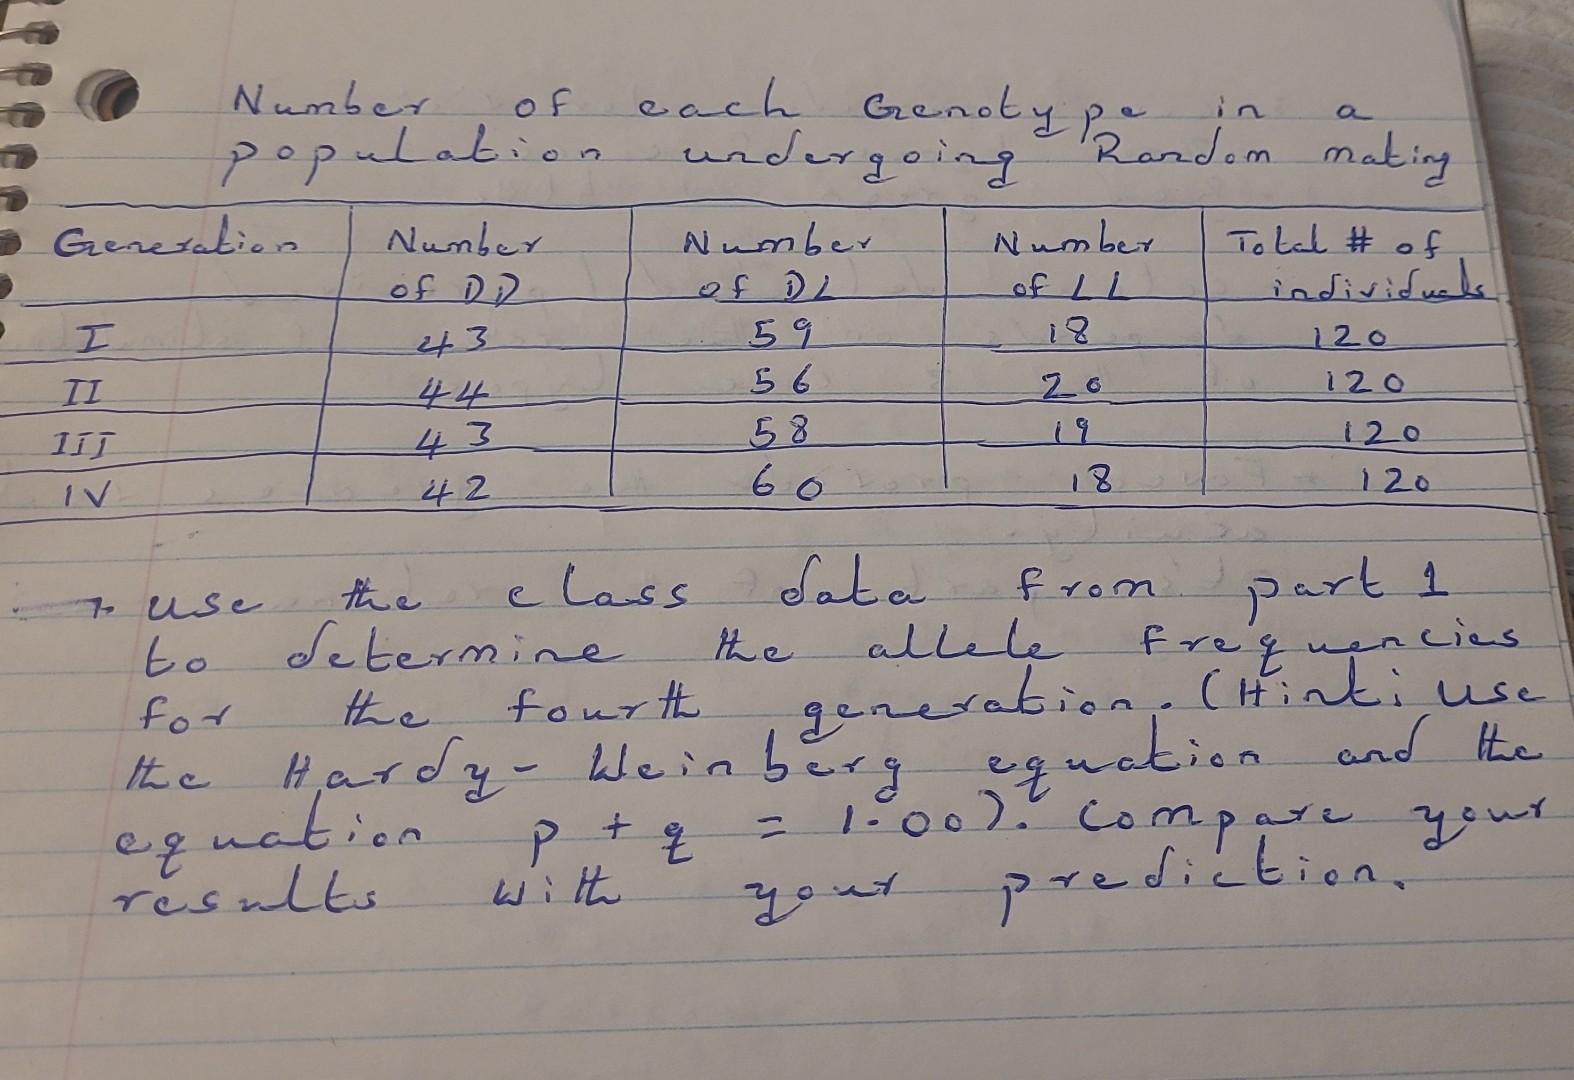 Number of each Genotype in a
population undergoing Random mating
Generation Number of DD Number of DL Number of LL Total # of individuals
I 43 59 18 120
II 44 56 20 120
III 43 58 19 120
IV 42 60 18 120
→ use the class data from part 1
to determine the allele frequencies
for the fourth generation. (Hint: Use
the Hardy-Weinberg equation and the
equation p + q = 1.00). Compare your
results with your prediction.